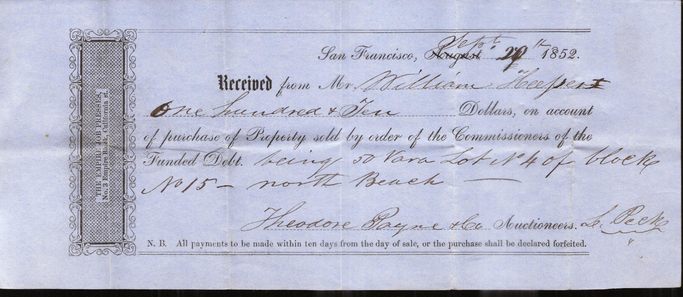 THE EMPIRE JOB PRESSES,
No. 3 Empire Block, California st.
San Francisco, August Sept 29th 1852.
Received from Mr. William
One hundred & Ten Dollars, on account
of purchase of Property sold by order of the Commissioners of the
Funded Debt. being 50 Vara Lot No 4 of block
No 15 — north Beach —
Theodore Payne & Co Auctioneers.
N. B. All payments to be made within ten days from the day of sale, or the purchase shall be declared forfeited.